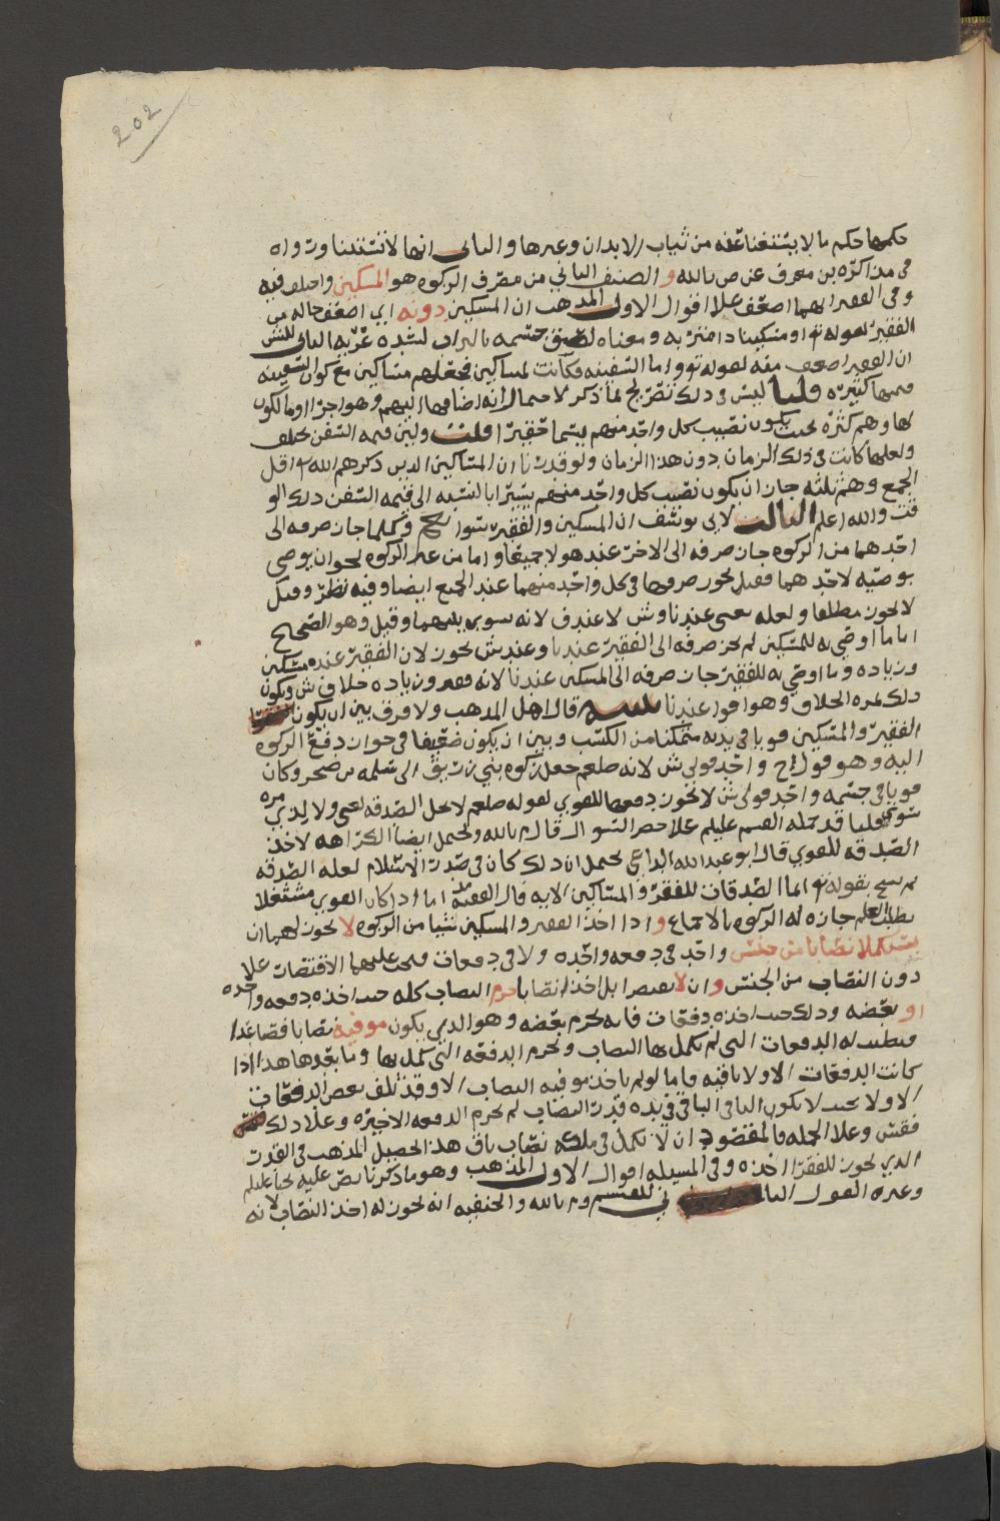 202
حكمها حكم ما لا يستغنا عنه من ثياب الابدان وغيرها والثاني انها لا تستثنا وتو اه
في مذاكره بن معرف عن ص بالله والصنف الثاني من مصرف الزكوه هو المسكين واختلف فيه
وفي الفقير ايهما اضعف علا اقوال الاول المذهب ان المسكين دونه اي اضعف حاله من
الفقير لقوله تع او مسكينا ذا متربه ومعناه لصق جسمه بالتراب لشده عريه الثاني للش
ان الفقير اضعف منه لقوله تع واما السفينه فكانت لمساكين فجعلهم مساكين مع كون السفينه
قيمتها كثيره قلنا ليس في ذلك تصريح لما ذكر لاحتمال انه اضافها اليهم وهو اجرا او مالكون
لها وهم كثره بحيث يكون نصيب كل واحد منهم يسما حقيرا قلت ولين قيمه السفن تختلف
ولعلها كانت في ذلك الزمان دون هذا الزمان ولو قدرنا ان المساكين الذين ذكرهم الله تع اقل
الجمع وهم ثلثه جاز ان يكون نصيب كل واحد منهم يسيرا بالنسبه الى قيمه السفن ذلك الو
قت والله اعلم الثالث لابي يوسف ان المسكين والفقير سوا وكلما جاز صرفه الى
احدهما من الزكوه جاز صرفه الى الاخر عند هولا جميعا واما من غير الزكوه نحو ان يوصي
بوصيه لاحدهما فقيل يجوز صرفها في كل واحد منهما عند الجميع ايضا وفيه نظر وقيل
لا يجوز مطلقا ولعله يعني عندنا وش لا عند ف لانه يسوي بينهما وقيل وهو الصحيح
اما ما اوصي به للمسكين لم يجز صرفه الى الفقير عندنا وعند ش يجوز لان الفقير عنده مسكين
وزياده وما اوصي به للفقير جاز صرفه الى المسكين عندنا لانه فقير وزياده خلاف ش ويكون
ذلك ثمره الخلاف وهو اقوا عندنا تنبيه قال اهل المذهب ولا فرق بين ان يكونا
الفقير والمسكين قويا في بدنه متمكنا من الكسب وبين ان يكون ضعيفا في جواز دفع الزكوه
اليه وهو قول ح واحد قولي ش لانه صلعم جعل زكوه بني زريق الى سلمه بن صخر وكان
قويا في جسمه واحد قولي ش لا يجوز دفعها للقوي لقوله صلعم لا تحل الصدقه لغني ولا لذي مره
سوي قلنا قد حمله القسم عليلم علا حصر السوال قال م بالله ويحتمل ايضا الكراهه لاخذ
الصدقه للقوي قال ابو عبد الله الداعي يحتمل ان ذلك كان في صدر الاسلام لعله الصدقه
ثم نسخ بقوله تع انما الصدقات للفقرا والمساكين الايه قال الفقيه اما اذا كان القوي مشتغلا
بطلب العلم جاز له الزكوه بالاجماع واذا اخذ الفقير والمسكين شيا من الزكوه لا يجوز لهما ان
يستكملا نصابا من جنس واحد في دفعه واحده ولا في دفعات ويجب عليهما الاقتصار علا
دون النصاب من الجنس وان لا يقتصرا بل اخذا نصابا حرم النصاب كله حيث اخذه دفعه واحده
او بعضه وذلك حيث اخذه دفعات فانه يحرم بعضه وهو الذي يكون موفيه نصابا فصاعدا
فيطيب له الدفعات التي لم تكمل بها النصاب وتحرم الدفعه التي كمل بها وما بعدها هذا اذا
كانت الدفعات الاوله باقيه فاما لو لم ياخذ موفيه النصاب الا وقد تلف بعض الدفعات
الاوله بحيث لا يكون الباقي الباقي في يده قدر النصاب لم تحرم الدفعه الاخيره وعلا ذلك
فقس وعلا الجمله فالمقصود ان لا تكمل في ملكه نصاب باق هذا تحصيل المذهب في القدر
الذي يجوز للفقرا اخذه وفي المسيله اقوال الاول المذهب وهو ما ذكرنا نص عليه يحيا عليلم
وغيره القول الثاني للقسم وم بالله والحنفيه انه يجوز له اخذ النصاب لانه